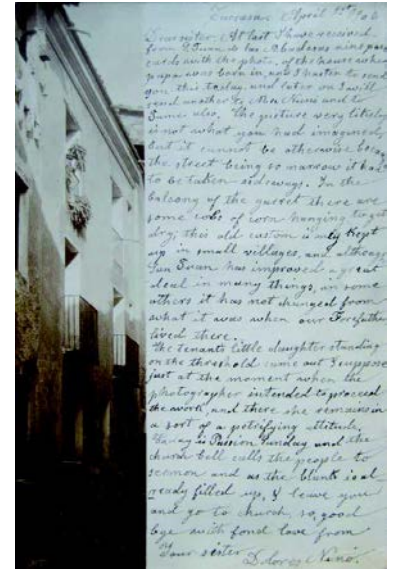 April 1st/06
Dear sister, At last I have received
from J. Juan de las Abaderas nine post
cards with the photo. of the house where
papa was born in, and I hasten to send
you this today, and later on I will
send another to Mrs. Nuni and to
also. The picture very likely
is not what you had imagined,
but it cannot be otherwise
the street being so narrow it had
to be taken sideways. In the
balcony of the garret there are
some cobs of corn hanging to get
dry; this old custom is only kept
up in small villages, and although
San Juan has improved a great
deal in many things, in some
others it has not changed from
what it was when our Forefathers
lived there.
The tenants little daughter standing
on the threshold came out I suppose
just at the moment when the
photographer intended to proceed
the work, and there she remains in
a sort of a petrifying attitude.
Today is Passion Sunday and the
church bell calls the people to
sermon and as the blank is al-
ready filled up, I leave you
and go to church, so, good
bye with fond love from
Your sister
Dolores Ninó.